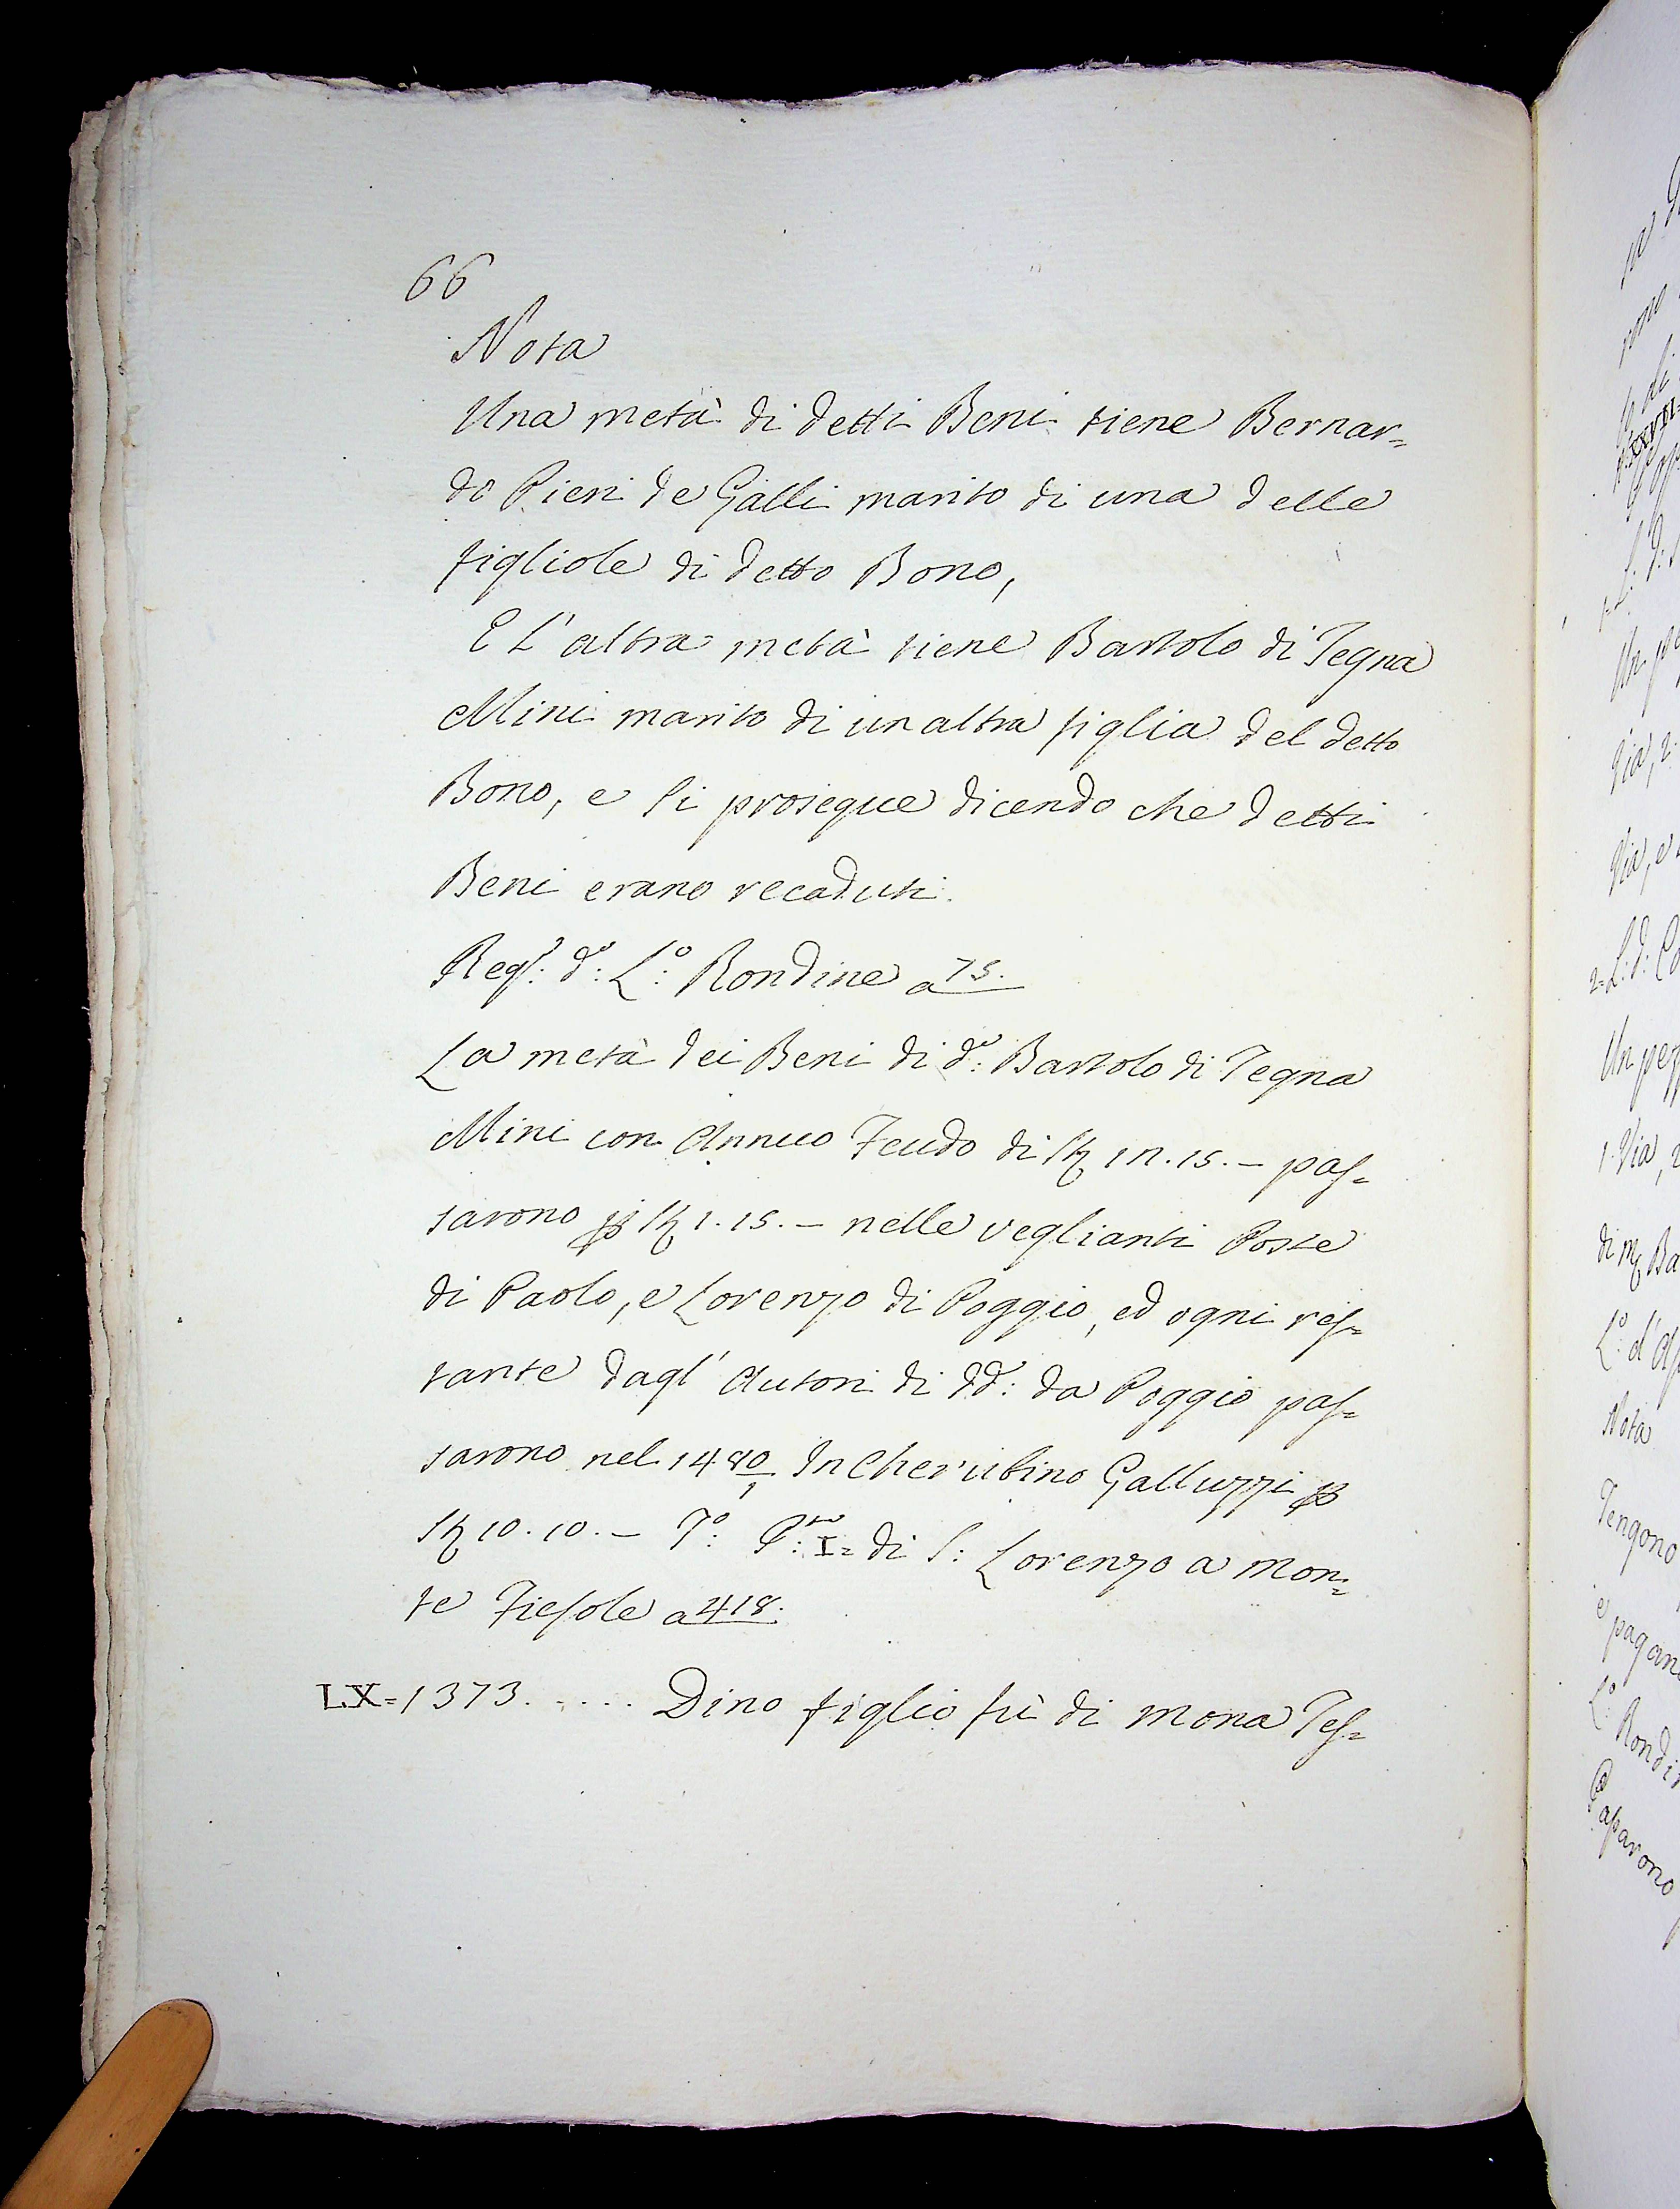 66
Nota
Una metà di detti Beni tiene Bernar=
do Pieri de Galli marito di una delle
figliole di detto Bono,
E L'altra metà tiene Bartolo di Tegna
Mini marito di un altra figlia del detto
Bono, e si prosegue dicendo che detti
Beni erano recaduti.
Regs: do: Lo: Rondine a 75.
La metà dei Beni di do: Bartolo di Tegna
Mini con Annuo Feudo di 15. — pas=
sarono p 1. 15. — nelle veglianti Poste
di Paolo, e Lorenzo di Poggio, ed ogni res=
tante dagl' Autori di dd: da Poggio pas=
sarono nel 1480 In Cherubino Galluzzi p
10. 10. — To: I= di S: Lorenzo a Mon=
te Fiesole a 418.
LX=1373. . . . . . Dino figlio fù di Mona Tes=